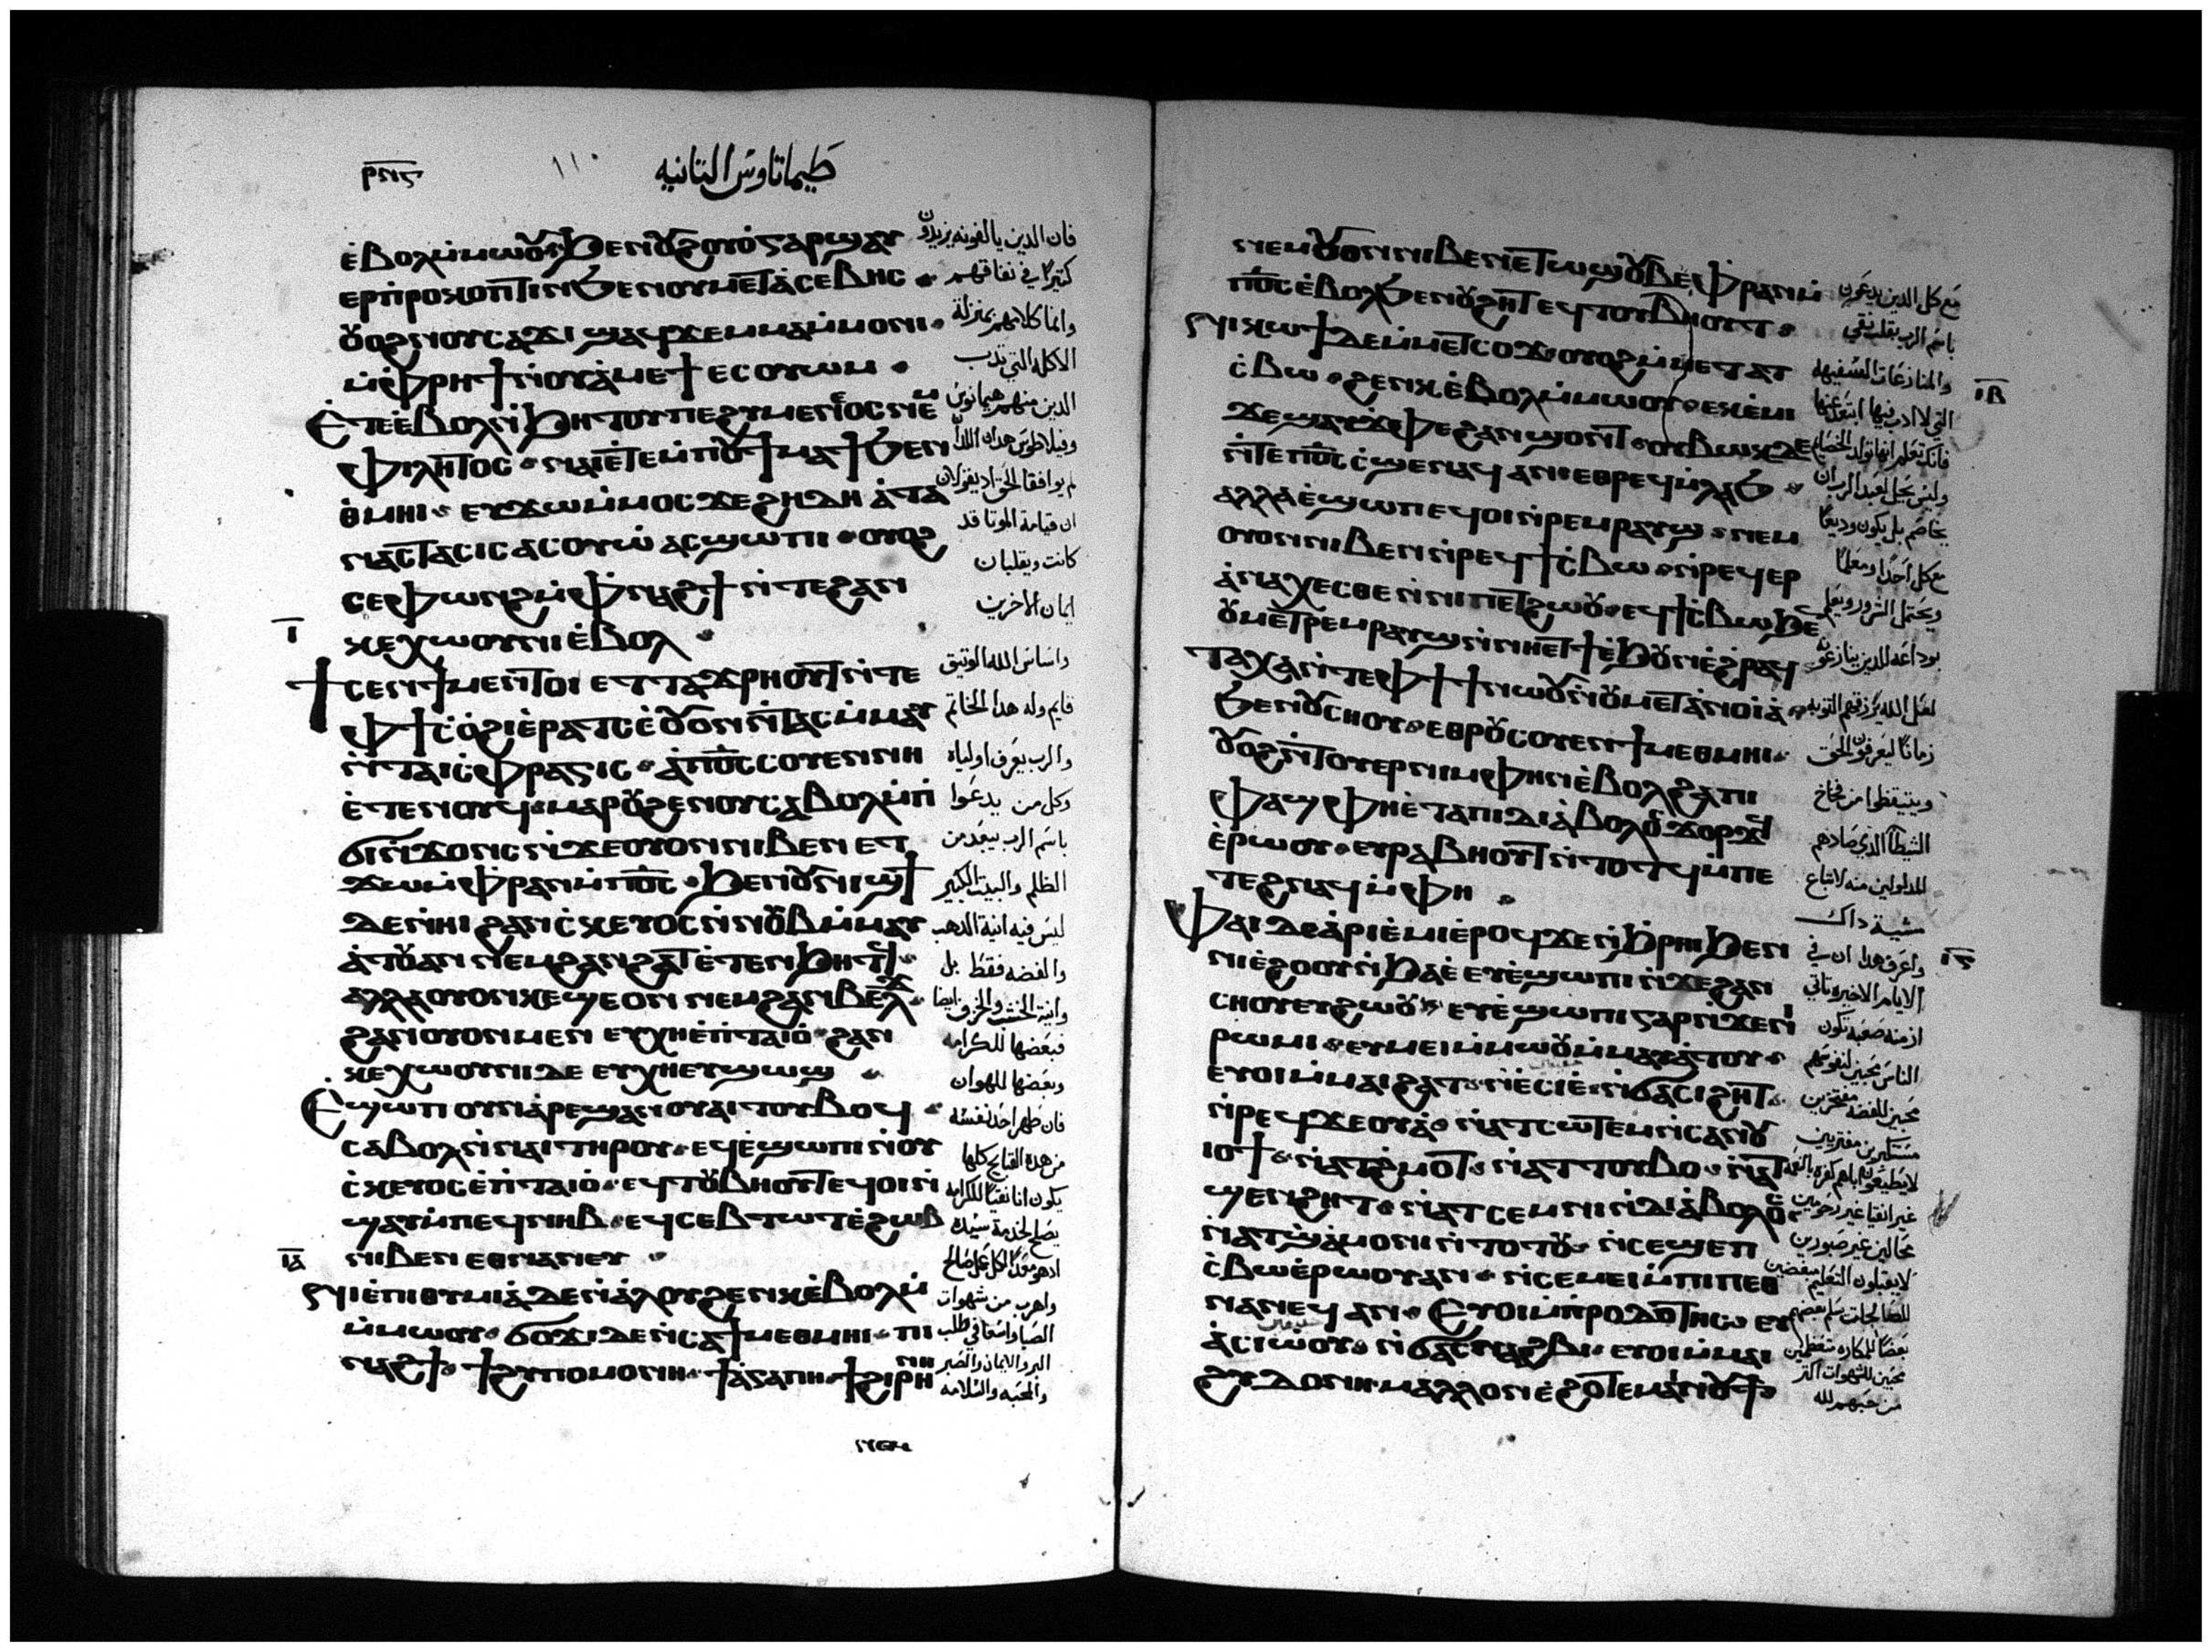 ⲣⲛⲋ
١١٠
طيماتاوس التانيه
ⲉ̀ⲃⲟⲗⲙ̀ⲙⲱⲟⲩ ϧⲉⲛⲟⲩϩⲟⲩⲟ̀ ⲅⲁⲣ ϣⲁⲩ
ⲉⲣⲡⲣⲟⲕⲟⲡⲧⲓⲛ ϧⲉⲛⲟⲩⲙⲉⲧⲁ̀ⲥⲉⲃⲏⲥ
ⲟⲩⲟϩ ⲛⲟⲩⲥⲁϫⲓ ϣⲁϥϫⲉⲙⲙⲁⲙ̀ⲙⲟⲛⲓ
ⲙ̀ⲫⲣⲏϯ ⲛ̀ⲟⲩⲁ̀ⲙⲉϯ ⲉⲥⲟⲩⲱⲙ
Ⲉ̀ⲧⲉⲉ̀ⲃⲟⲗⲛ̀ϧⲏⲧⲟⲩ ⲡⲉ ϩⲩⲙⲉⲛⲉⲟⲥ ⲛⲉⲙ
ⲫⲓⲗⲏⲧⲟⲥ ⲛⲁⲓⲉⲧⲉⲙⲡⲟⲩϯⲙⲁϯ ϧⲉⲛϯ
ⲑⲙⲏⲓ ⲉⲩϫⲱⲙ̀ⲙⲟⲥ ϫⲉ ϩⲏⲇⲏ ⲁ̀ⲧⲁ
ⲛⲁⲥⲧⲁⲥⲓⲥ ⲁⲥⲟⲩⲱ ⲁⲥϣⲱⲡⲓ ⲟⲩⲟϩ
ⲥⲉⲫⲱⲛϩ ⲙ̀ⲫⲛⲁϩϯ ⲛ̀ⲧⲉϩⲁⲛ
ⲓ̅
ⲕⲉⲭⲱⲟⲩⲛⲓ ⲉ̀ⲃⲟⲗ
Ϯⲥⲉⲛϯ ⲙⲉⲛⲧⲟⲓ ⲉⲧⲧⲁϫⲣⲏⲟⲩⲧ ⲛ̀ⲧⲉ
ⲫϯ ⲥⲟ̀ϩⲓⲉ̀ⲣⲁⲧⲥ ⲉ̀ⲟⲩⲟⲛ ⲛⲧⲁⲥ ⲙ̀ⲙⲁⲩ
ⲛ̀ⲧⲁⲓⲥ̀ⲫⲣⲁⲅⲓⲥ ⲁ̀ⲡⲟ̅ⲥ̅ ⲥⲟⲩⲉⲛ ⲛⲏ
ⲉ̀ⲧⲉⲛⲟⲩϥ ⲙⲁⲣⲟⲩϩⲉⲛⲟⲩ ⲥⲁⲃⲟⲗⲙ̀ⲡⲓ
ϭⲓⲛ̀ϫⲟⲛⲥ ⲛ̀ϫⲉⲟⲩⲟⲛ ⲛⲓⲃⲉⲛ ⲉⲧ
ϫⲱⲙ̀ⲫⲣⲁⲛⲙ̀ⲡⲟ̅ⲥ̅ ϧⲉⲛⲟⲩⲛⲓϣϯ
ⲇⲉⲛ̀ⲏⲓ ϩⲁⲛⲥ̀ⲕⲉⲩⲟⲥ ⲛ̀ⲛⲟⲩⲃ ⲙ̀ⲙⲁⲩ
ⲁ̀ⲧⲟⲩⲁⲛ ⲛⲉⲙϩⲁⲛϩⲁⲧ ⲉ̀ⲧⲉⲛϧⲏⲧϥ
ⲁⲗⲗⲁ ⲟⲩⲟⲛ ⲕⲉϣⲉ ⲟⲛ ⲛⲉⲙϩⲁⲛⲃⲉⲗϫ
ϩⲁⲛⲟⲩⲟⲛ ⲙⲉⲛ ⲉⲩⲭⲏ ⲉ̀ⲡⲧⲁⲓⲟ̀ ϩⲁⲛ
ⲕⲉⲭⲱⲟⲩⲛⲓ ⲇⲉ ⲉⲩⲭⲏ ⲉⲩϣⲱϣ
Ⲉ̀ϣⲱⲡ ⲟⲩⲛ ⲁ̀ⲣⲉϣⲁⲛⲟⲩⲁⲓ ⲧⲟⲩⲃⲟϥ
ⲥⲁⲃⲟⲗⲛ̀ⲛⲁⲓ ⲧⲏⲣⲟⲩ ⲉϥⲉ̀ϣⲱⲡⲓ ⲛ̀ⲟⲩ
ⲥ̀ⲕⲉⲩⲟⲥ ⲉ̀ⲡⲧⲁⲓⲟ̀ ⲉϥⲧⲟⲩⲃⲏⲟⲩⲧ ⲉϥⲟⲓ ⲛ̀
ϣⲁⲩ ⲙ̀ⲡⲉϥⲛⲏⲃ ⲉϥⲥⲉⲃⲧⲱⲧ ⲉ̀ϩⲱⲃ
ⲓ̅ⲁ̅
ⲛⲓⲃⲉⲛ ⲉⲑⲛⲁⲛⲉⲩ
ⲛⲓⲉ̀ⲡⲓⲑⲩⲙⲓⲁ̀ ⲇⲉ ⲛ̀ⲁ̀ⲗⲟⲩ ϩⲉⲛⲕ ⲉ̀ⲃⲟⲗⲙ̀
ⲙ̀ⲙⲱⲟⲩ ϭⲟϫⲓ ⲇⲉ ⲛ̀ⲥⲁϯⲙⲉⲑⲙⲏⲓ ⲡⲓ
ⲛⲁϩϯ ϯϩⲩⲡⲟⲙⲟⲛⲏ ϯⲁ̀ⲅⲁⲡⲏ ϯϩⲓⲣⲏⲛⲏ
ⲛⲉⲙ
فان الدين يالفونه يزيدون
كتيرًا في نفاقهم
وانما كلامهم بمنزلة
الاكله التي تدب
الدين منهم هيمانوس
وفيلاطوس هدان اللدان
لم يوافقا الحق اد يقولان
ان قيامة الموتا قد
كانت ويقلبان
ايمان الاخرين
واساس الله الوتيق
قايم وله هدا الخاتم
والرب يعرف اولياه
وكل من يدعوا
باسم الرب يبعد من
الظلم والبيت الكبير
ليس فيه انية الدهب
والفضه فقط بل
وانية الخشب والخزف ايضا
فبعضها للكرامه
وبعضها للهوان
فان طهر احد نفسه
من هده القبايح كلها
يكون انا نقيًا للكرامه
يصلح لخدمة سيده
واهرب من شهوات
الصبا واسعا في طلب
البر والايمان والصبر
والمحبه والسلامه
ⲛⲉⲙⲟⲩⲟⲛ ⲛⲓⲃⲉⲛ ⲉⲧⲱϣ ⲟⲩⲃⲉ ⲫⲣⲁⲛ ⲙ̀
ⲡⲟ̅ⲥ̅ ⲉ̀ⲃⲟⲗϧⲉⲛⲟⲩϩⲏⲧ ⲉϥⲧⲟⲩⲃⲏⲟⲩⲧ
ⲛⲓⲕⲱϯ ⲇⲉ ⲙ̀ⲙⲉⲧⲥⲟϫ ⲟⲩⲟϩ ⲙ̀ⲙⲉⲧⲁⲧ
ⲓ̅ⲃ̅
ⲥ̀ⲃⲱ ϩⲉⲛⲕ ⲉ̀ⲃⲟⲗⲙ̀ⲙⲱⲟⲩ ⲉⲕⲉ̀ⲙⲓ
ϫⲉ ϣⲁⲩϫⲫⲉ ϩⲁⲛϣⲟⲛⲧ ⲟⲩⲃⲱⲕ ⲇⲉ
ⲛ̀ⲧⲉⲡⲟ̅ⲥ̅ ⲥ̀ϣⲉ ⲛⲁϥ ⲁⲛ ⲉⲑⲣⲉϥⲙ̀ⲗⲁϧ
ⲁⲗⲗⲁ ⲉ̀ϣⲱⲡ ⲉϥⲟⲓ ⲛ̀ⲣⲉⲙⲣⲁⲩϣ ⲛⲉⲙ
ⲟⲩⲟⲛ ⲛⲓⲃⲉⲛ ⲛ̀ⲣⲉϥϯⲥ̀ⲃⲱ ⲛ̀ⲣⲉϥⲉⲣ
ⲁ̀ⲛⲁⲭⲉⲥⲑⲉ ⲛ̀ⲛⲓⲡⲉⲧϩⲱⲟⲩ ⲉϥϯⲥ̀ⲃⲱ ϧⲉⲛ
ⲟⲩⲙⲉⲧⲣⲉⲙⲣⲁⲩϣ ⲛ̀ⲛⲏⲉⲧϯ ⲉ̀ϧⲟⲩⲛ ⲉ̀ϩⲣⲁϥ
ⲧⲁⲭⲁ ⲛ̀ⲧⲉⲫϯ ϯ ⲛⲱⲟⲩ ⲛ̀ⲟⲩⲙⲉⲧⲁ̀ⲛⲟⲓⲁ̀
ϧⲉⲛⲟⲩⲥⲏⲟⲩ ⲉⲑⲣⲟⲩⲥⲟⲩⲉⲛ ϯⲙⲉⲑⲙⲏⲓ
ⲟⲩⲟϩ ⲛ̀ⲧⲟⲩⲉⲣⲛⲩⲙⲫⲏⲛ ⲉ̀ⲃⲟⲗϩⲁ ⲡⲓ
ⲫⲁϣ ⲫⲏⲉ̀ⲧⲁⲡⲓⲇⲓⲁ̀ⲃⲟⲗⲟⲥ ϫⲟⲣϫϥ
ⲉ̀ⲣⲱⲟⲩ ⲉⲩⲣⲁⲃⲏⲟⲩⲧ ⲛ̀ⲧⲟⲧϥ ⲙ̀ⲡⲉ
ⲧⲉϩⲛⲁϥ ⲙ̀ⲫⲏ
Ⲫⲁⲓ ⲇⲉ ⲁ̀ⲣⲓⲉ̀ⲙⲓ ⲉ̀ⲣⲟϥ ϫⲉ ⲛ̀ϧⲣⲏⲓ ϧⲉⲛ
ⲓ̅ⲅ̅
ⲛⲓⲉ̀ϩⲟⲟⲩ ⲛ̀ϧⲁⲉ̀ ⲉⲩⲉ̀ϣⲱⲡⲓ ⲛ̀ϫⲉϩⲁⲛ
ⲥⲏⲟⲩ ⲉⲩϩⲱⲟⲩ ⲉⲩⲉ̀ϣⲱⲡⲓ ⲅⲁⲣ ⲛ̀ϫⲉⲛⲓ
ⲣⲱⲙⲓ ⲉⲩⲙⲉⲓ ⲙ̀ⲙⲱⲟⲩ ⲙ̀ⲙⲁⲩⲁ̀ⲧⲟⲩ
ⲉⲩⲟⲓ ⲙ̀ⲙⲁⲓϩⲁⲧ ⲛ̀ⲉⲥⲓⲉ̀ ⲛ̀ϭⲁⲥⲓϩⲏⲧ
ⲛ̀ⲣⲉϥϫⲉⲟⲩⲁ̀ ⲛ̀ⲁⲧⲥⲱⲧⲉⲙ ⲛ̀ⲥⲁⲛⲟⲩ
ⲓⲟϯ ⲛ̀ⲁⲧϩ̀ⲙⲟⲧ ⲛ̀ⲁⲧⲧⲟⲩⲃⲟ ⲛ̀ⲁⲧ
ϣⲉⲛϩⲏⲧ ⲛ̀ⲁⲧⲥⲉⲙⲛⲓ ⲛ̀ⲇⲓⲁ̀ⲃⲟⲗⲟⲥ
ⲛ̀ⲁⲧϣ̀ⲁⲙⲟⲛⲓ ⲛ̀ⲧⲟⲧⲟⲩ ⲛ̀ⲥⲉϣⲉⲡ
ⲥ̀ⲃⲱ ⲉ̀ⲣⲱⲟⲩ ⲁⲛ ⲛ̀ⲥⲉⲙⲉⲓ ⲙ̀ⲡⲓⲡⲉⲑ
ⲛⲁⲛⲉϥ ⲁⲛ ⲉⲩⲟⲓ ⲙ̀ⲡⲣⲟⲇⲟⲧⲏⲥ ⲉⲩ
ⲁ̀ⲥⲓⲱⲟⲩ ⲛ̀ϭⲁⲥⲛⲁϩⲃⲓ ⲉⲩⲟⲓ ⲙ̀ⲙⲁⲓ
ϩⲩⲇⲟⲛⲏ ⲙⲁⲗⲗⲟⲛ ⲉ̀ϩⲟⲧⲉ ⲙⲁⲓⲛⲟⲩϯ
مع كل الدين يدعون
باسم الرب بقلب نقي
والمنازعات السفيهه
التي لا ادب فيها ابتعد عنها
فانك تعلم انها تولد الخصام
وليس يحل لعبد الرب ان
يخاصم بل يكون وديعًا
مع كل احدًا ومعلمًا
ويحتمل الشرور ويعلم
بوداعه للدين ينازعونه
لعل الله يرزقهم التوبه
زمانًا ليعرفون الحق
ويتيقظوا من فخاخ
الشيطان الدي صادهم
لاتباع
مشية داك
واعرف هدا ان في
الايام الاخيره تاتي
ازمنه صعبه تكون
الناس محبين لنفوسهم
محبين للفضه مفتخرين
مستكبرين مفتريين
غير انقيا غير رحومين
محالين غير صبورين
لا يقبلون التعليم مبغضين
محبين للشهوات اكتر
من حبهم لله